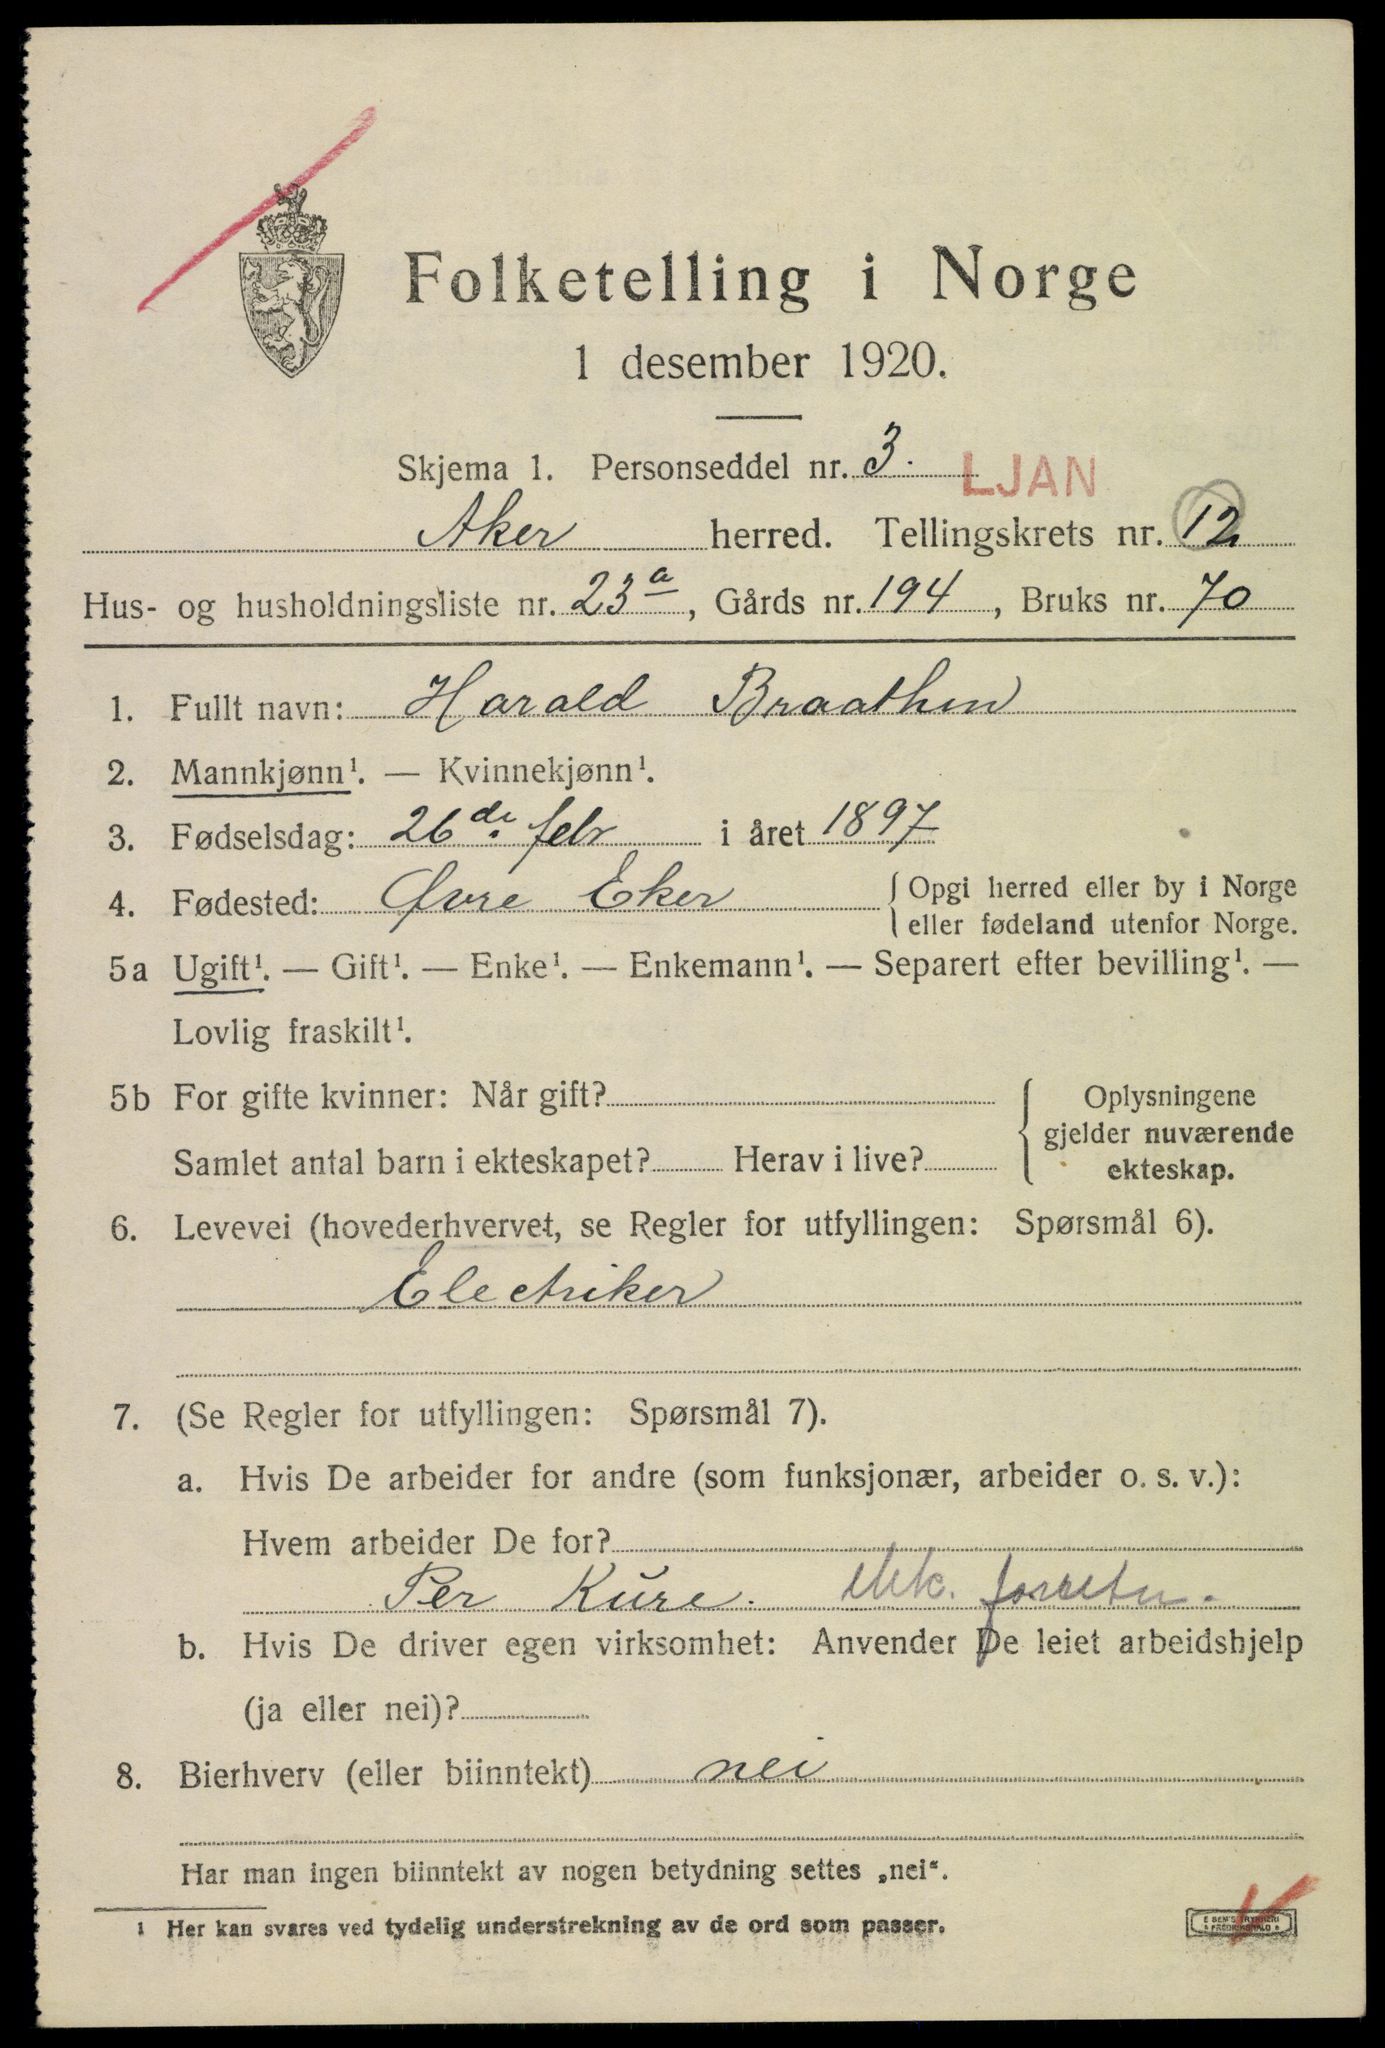 Folketelling i Norge
1 desember 1920.
Skjema 1. Personseddel nr. 3. LJAN
Aker herred. Tellingskrets nr. 12
Hus- og husholdningsliste nr. 23a, Gårds nr. 194, Bruks nr. 70
1. Fullt navn: Harald Braathen
2. Mannkjønn¹. — Kvinnekjønn¹.
3. Fødselsdag: 26de febr i året 1897
4. Fødested: Øvre Eker { Opgi herred eller by i Norge
eller fødeland utenfor Norge.
5a Ugift¹. — Gift¹. — Enke¹. — Enkemann¹. — Separert efter bevilling¹. —
Lovlig fraskilt¹.
5b For gifte kvinner: Når gift? Oplysningene
gjelder nuværende
Samlet antal barn i ekteskapet? Herav i live? ekteskap.
6. Levevei (hovederhvervet, se Regler for utfyllingen: Spørsmål 6).
Electriker
7. (Se Regler for utfyllingen: Spørsmål 7).
a. Hvis De arbeider for andre (som funksjonær, arbeider o. s. v.):
Hvem arbeider De for?
Per Kure. elek. forretn.
b. Hvis De driver egen virksomhet: Anvender De leiet arbeidshjelp
(ja eller nei)?
8. Bierhverv (eller biinntekt) nei
Har man ingen biinntekt av nogen betydning settes „nei“.
¹ Her kan svares ved tydelig understrekning av de ord som passer.